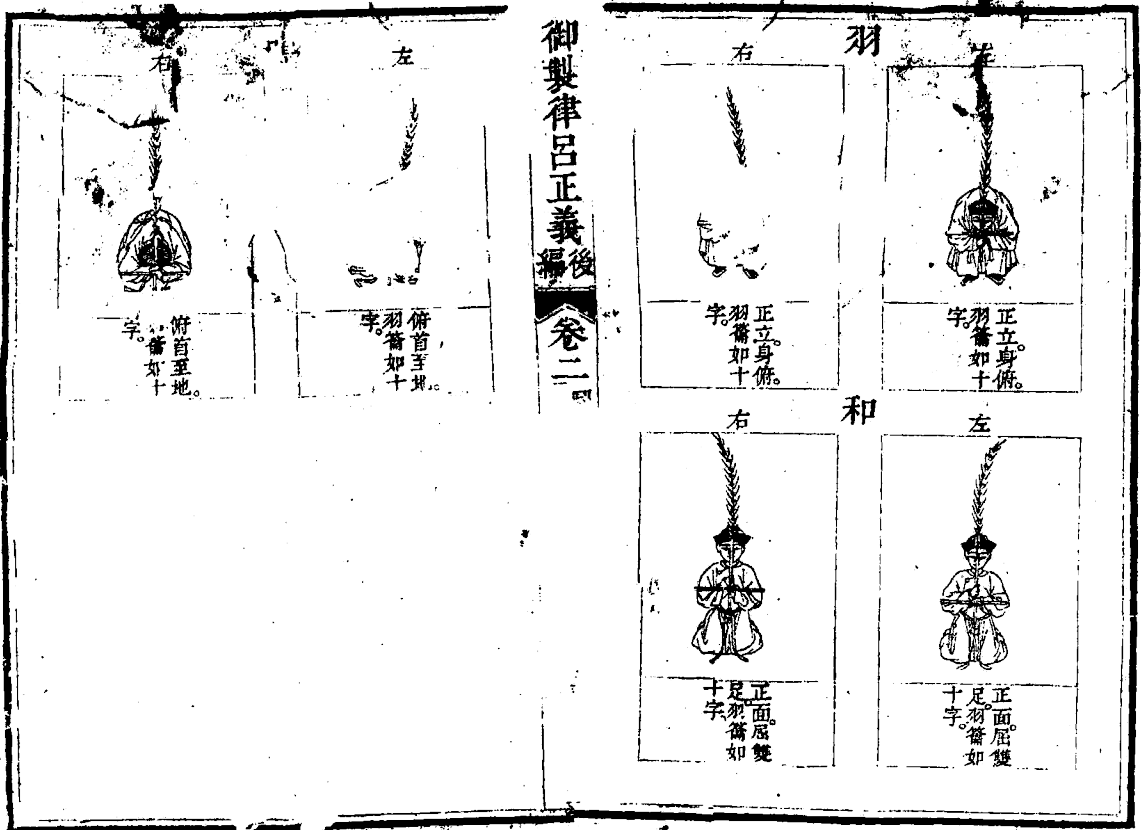 羽
左
正立。身俯。
羽籥如十
字。
右
正立。身俯。
羽籥如十
字。
和
左
正面。屈雙
足。羽籥如
十字。
右
正面。屈雙
足。羽籥如
十字。
御製律呂正義後編
卷二
左
俯首至地。
羽籥如十
字。
右
俯首至地。
籥如十
字。